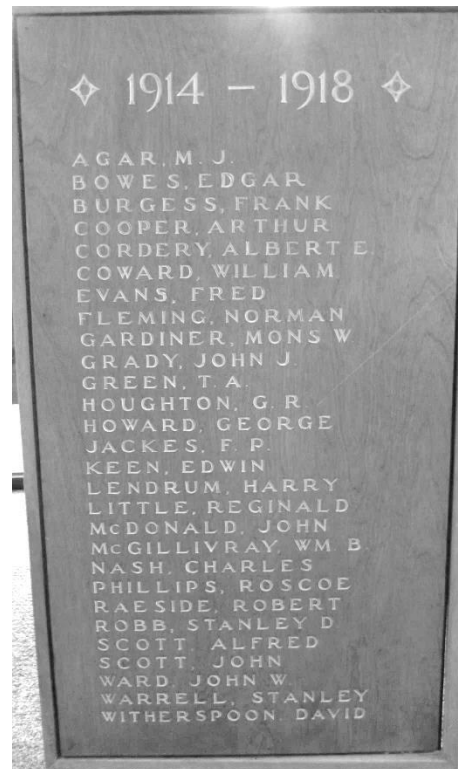 1914 – 1918
AGAR, M. J.
BOWES, EDGAR
BURGESS, FRANK
COOPER, ARTHUR
CORDERY, ALBERT E.
COWARD, WILLIAM
EVANS, FRED
FLEMING, NORMAN
GARDINER, MONS W
GRADY, JOHN J.
GREEN, T. A.
HOUGHTON, G. R.
HOWARD, GEORGE
JACKES, F. P.
KEEN, EDWIN
LENDRUM, HARRY
LITTLE, REGINALD
McDONALD, JOHN
McGILLIVRAY, WM. B.
NASH, CHARLES
PHILLIPS, ROSCOE
RAESIDE, ROBERT
ROBB, STANLEY D
SCOTT, ALFRED
SCOTT, JOHN
WARD, JOHN W.
WARRELL, STANLEY
WITHERSPOON, DAVID